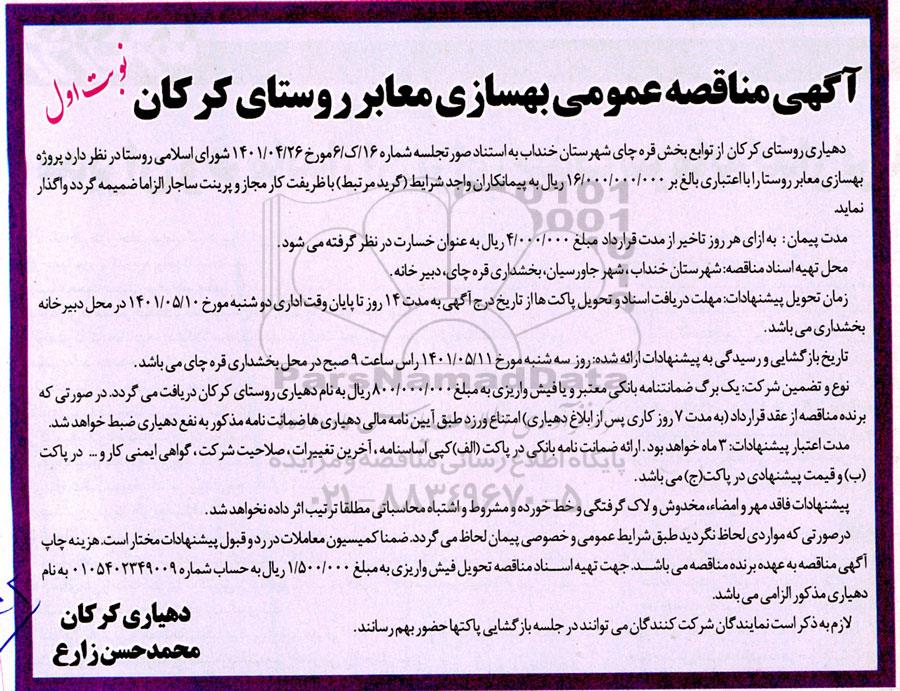 آگهی مناقصه عمومی بهسازی معابر روستای کرکان
نوبت اول
دهیاری روستای کرکان از توابع بخش قره چای شهرستان خنداب به استناد صورتجلسه شماره ۱۶/ک/۶مورخ ۱۴۰۱/۰۴/۲۶ شورای اسلامی روستا در نظر دارد پروژه
بهسازی معابر روستا را با اعتباری بالغ بر ۱۶/۰۰۰/۰۰۰/۰۰۰ ریال به پیمانکاران واجد شرایط (گرید مرتبط) با ظریفت کار مجاز و پرینت ساجار الزاما ضمیمه گردد واگذار
نماید.
مدت پیمان : به ازای هر روز تاخیر از مدت قرارداد مبلغ ۴/۰۰۰/۰۰۰ ریال به عنوان خسارت در نظر گرفته می شود .
محل تهیه اسناد مناقصه: شهرستان خنداب ، شهر جاورسیان، بخشداری قره چای، دبیر خانه .
زمان تحویل پیشنهادات: مهلت دریافت اسناد و تحویل پاکت ها از تاریخ درج آگهی به مدت ۱۴ روز تا پایان وقت اداری دو شنبه مورخ ۱۴۰۱/۰۵/۱۰ در محل دبیر خانه
بخشداری می باشد.
تاریخ بازگشایی و رسیدگی به پیشنهادات ارائه شده: روز سه شنبه مورخ ۱۴۰۱/۰۵/۱۱ راس ساعت ۹ صبح در محل بخشداری قره چای می باشد .
نوع و تضمین شرکت: یک برگ ضمانتنامه بانکی معتبر و یا فیش واریزی به مبلغ ۸۰۰/۰۰۰/۰۰۰ ریال به نام دهیاری روستای کرکان دریافت می گردد. در صورتی که
برنده مناقصه از عقد قرارداد (به مدت ۷ روز کاری پس از ابلاغ دهیاری) امتناع ورزد طبق آیین نامه مالی دهیاری ها ضمانت نامه مذکور به نفع دهیاری ضبط خواهد شد.
مدت اعتبار پیشنهادات: ۳ ماه خواهد بود . ارائه ضمانت نامه بانکی در پاکت (الف) کپی آساسنامه ، آخرین تغییرات ، صلاحیت شرکت ، گواهی ایمنی کار و ... در پاکت
(ب) و قیمت پیشنهادی در پاکت (ج) می باشد .
پیشنهادات فاقد مهر و امضاء، مخدوش و لاک گرفتگی و خط خورده و مشروط و اشتباه محاسباتی مطلقا ترتیب اثر داده نخواهد شد .
درصورتی که مواردی لحاظ نگردید طبق شرایط عمومی و خصوصی پیمان لحاظ می گردد. ضمنا کمیسیون معاملات در رد و قبول پیشنهادات مختار است. هزینه چاپ
آگهی مناقصه به عهده برنده مناقصه می باشد. جهت تهیه اسناد مناقصه تحویل فیش واریزی به مبلغ ۱/۵۰۰/۰۰۰ ریال به حساب شماره ۰۱۰۵۴۰۲۳۴۹۰۰۹ به نام
دهیاری مذکور الزامی می باشد.
لازم به ذکر است نمایندگان شرکت کنندگان می توانند در جلسه بازگشایی پاکتها حضور بهم رسانند .
دهیاری کرکان
محمدحسن زارع
ParsNamadData
پایگاه اطلاع رسانی مناقصه و مزایده
۰۲۱-۸۸۳۴۹۶۷۰-۵